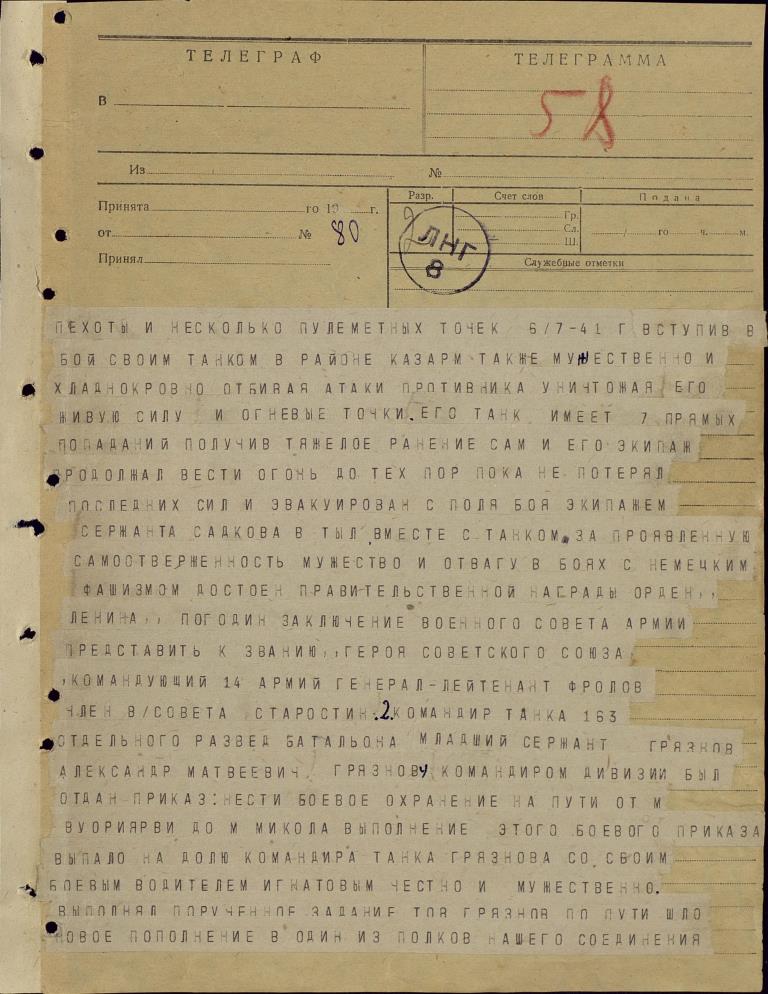 ТЕЛЕГРАФ
ТЕЛЕГРАММА
В
58
Из
№
Принята го 19 г.
Разр. Счет слов Подана
Гр.
от № 80
Сл. / го ч. м.
Ш.
ЛНГ
8
Принял
Служебные отметки
ПЕХОТЫ И НЕСКОЛЬКО ПУЛЕМЕТНЫХ ТОЧЕК 6/7-41 Г ВСТУПИВ В
БОЙ СВОИМ ТАНКОМ В РАЙОНЕ КАЗАРМ ТАКЖЕ МУЖЕСТВЕННО И
ХЛАДНОКРОВНО ОТБИВАЯ АТАКИ ПРОТИВНИКА УНИЧТОЖАЯ ЕГО
ЖИВУЮ СИЛУ И ОГНЕВЫЕ ТОЧКИ. ЕГО ТАНК ИМЕЕТ 7 ПРЯМЫХ
ПОПАДАНИЙ ПОЛУЧИВ ТЯЖЕЛОЕ РАНЕНИЕ САМ И ЕГО ЭКИПАЖ
ПРОДОЛЖАЛ ВЕСТИ ОГОНЬ ДО ТЕХ ПОР ПОКА НЕ ПОТЕРЯЛ
ПОСЛЕДНИХ СИЛ И ЭВАКУИРОВАН С ПОЛЯ БОЯ ЭКИПАЖЕМ
СЕРЖАНТА САДКОВА В ТЫЛ ВМЕСТЕ С ТАНКОМ. ЗА ПРОЯВЛЕННУЮ
САМООТВЕРЖЕННОСТЬ МУЖЕСТВО И ОТВАГУ В БОЯХ С НЕМЕЦКИМ
ФАШИЗМОМ ДОСТОЕН ПРАВИТЕЛЬСТВЕННОЙ НАГРАДЫ ОРДЕН,,
ЛЕНИНА,, ПОГОДИН ЗАКЛЮЧЕНИЕ ВОЕННОГО СОВЕТА АРМИИ
ПРЕДСТАВИТЬ К ЗВАНИЮ,,ГЕРОЯ СОВЕТСКОГО СОЮЗА,
,КОМАНДУЮЩИЙ 14 АРМИЙ ГЕНЕРАЛ-ЛЕЙТЕНАНТ ФРОЛОВ
ЧЛЕН В/СОВЕТА СТАРОСТИН.2.КОМАНДИР ТАНКА 163
ОТДЕЛЬНОГО РАЗВЕД БАТАЛЬОНА МЛАДШИЙ СЕРЖАНТ ГРЯЗНОВ
АЛЕКСАНДР МАТВЕЕВИЧ. ГРЯЗНОВУ КОМАНДИРОМ ДИВИЗИИ БЫЛ
ОТДАН ПРИКАЗ:НЕСТИ БОЕВОЕ ОХРАНЕНИЕ НА ПУТИ ОТ М
ВУОРИЯРВИ ДО М МИКОЛА ВЫПОЛНЕНИЕ ЭТОГО БОЕВОГО ПРИКАЗА
ВЫПАЛО НА ДОЛЮ КОМАНДИРА ТАНКА ГРЯЗНОВА СО СВОИМ
БОЕВЫМ ВОДИТЕЛЕМ ИГНАТОВЫМ ЧЕСТНО И МУЖЕСТВЕННО.
ВЫПОЛНЯЛ ПОРУЧЕННОЕ ЗАДАНИЕ ТОВ ГРЯЗНОВ ПО ПУТИ ШЛО
НОВОЕ ПОПОЛНЕНИЕ В ОДИН ИЗ ПОЛКОВ НАШЕГО СОЕДИНЕНИЯ